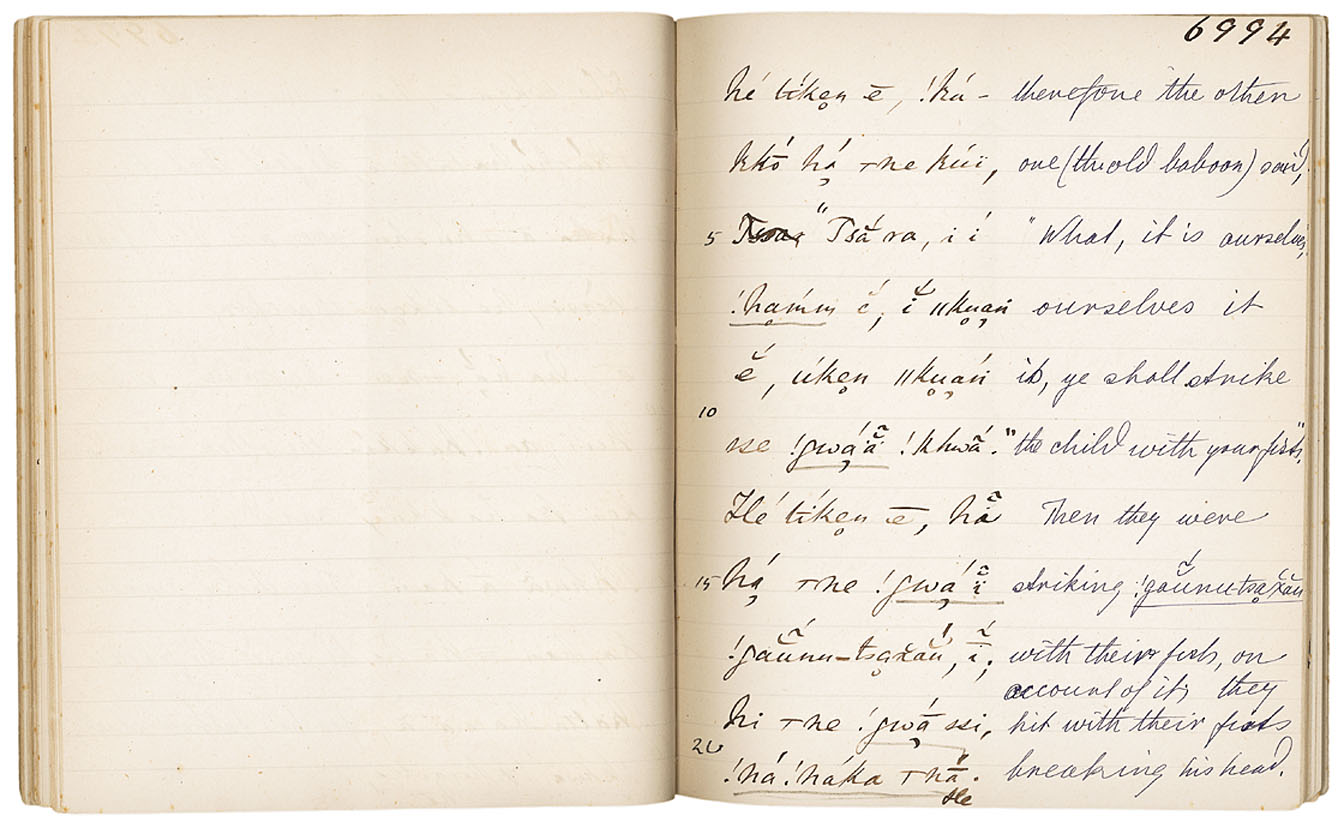 6994
hé tíken ē, !kú- therefore the other
kkō̆ hą́ ⊤ne kúï, one (the old baboon) said,
5 "Tsắ ra, i í "What, it is ourselves,
!hamḿ é, ĭ́ ǁkuań ourselves it
ĕ́, úken ǁkuań is, ye shall strike
10
sse !gwą́ ẵ !khwẵ." the child with your fists".
Hé tíken ē, hã̊ Then they were
15 hą́ ⊤ne !gwą́ ĩ̈ striking !gaŭ́nu-tsąx̆ău
!gaŭ́nu-tsąx̆aú, ĩ́; with their fists, on
account of it; they
hi ⊤ne !gwą́ ssi, hit with their fists
20
!há !háka ⊤ná̄. breaking his head.
He